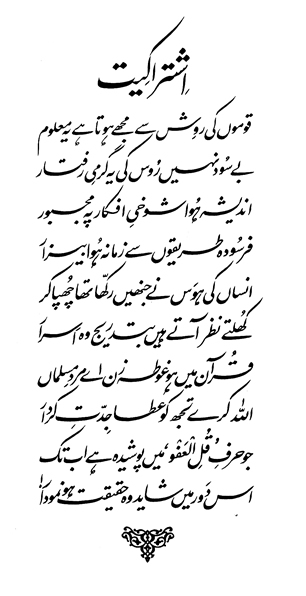 اِشتراکیت
قوموں کی روِش سے مجھے ہوتا ہے یہ معلوم
بے سُود نہیں رُوس کی یہ گرمیِ رفتار
اندیشہ ہُوا شوخیِ افکار پہ مجبور
فرسُودہ طریقوں سے زمانہ ہُوا بیزار
انساں کی ہوَس نے جنھیں رکھّا تھا چھُپا کر
کھُلتے نظر آتے ہیں بتدریج وہ اسرار
قُرآن میں ہو غوطہ زن اے مردِ مسلماں
اللہ کرے تجھ کو عطا جِدّتِ کردار
جو حرفِ ’قُلِ الْعَفْو‘ میں پوشیدہ ہے اب تک
اس دَور میں شاید وہ حقیقت ہو نمودار